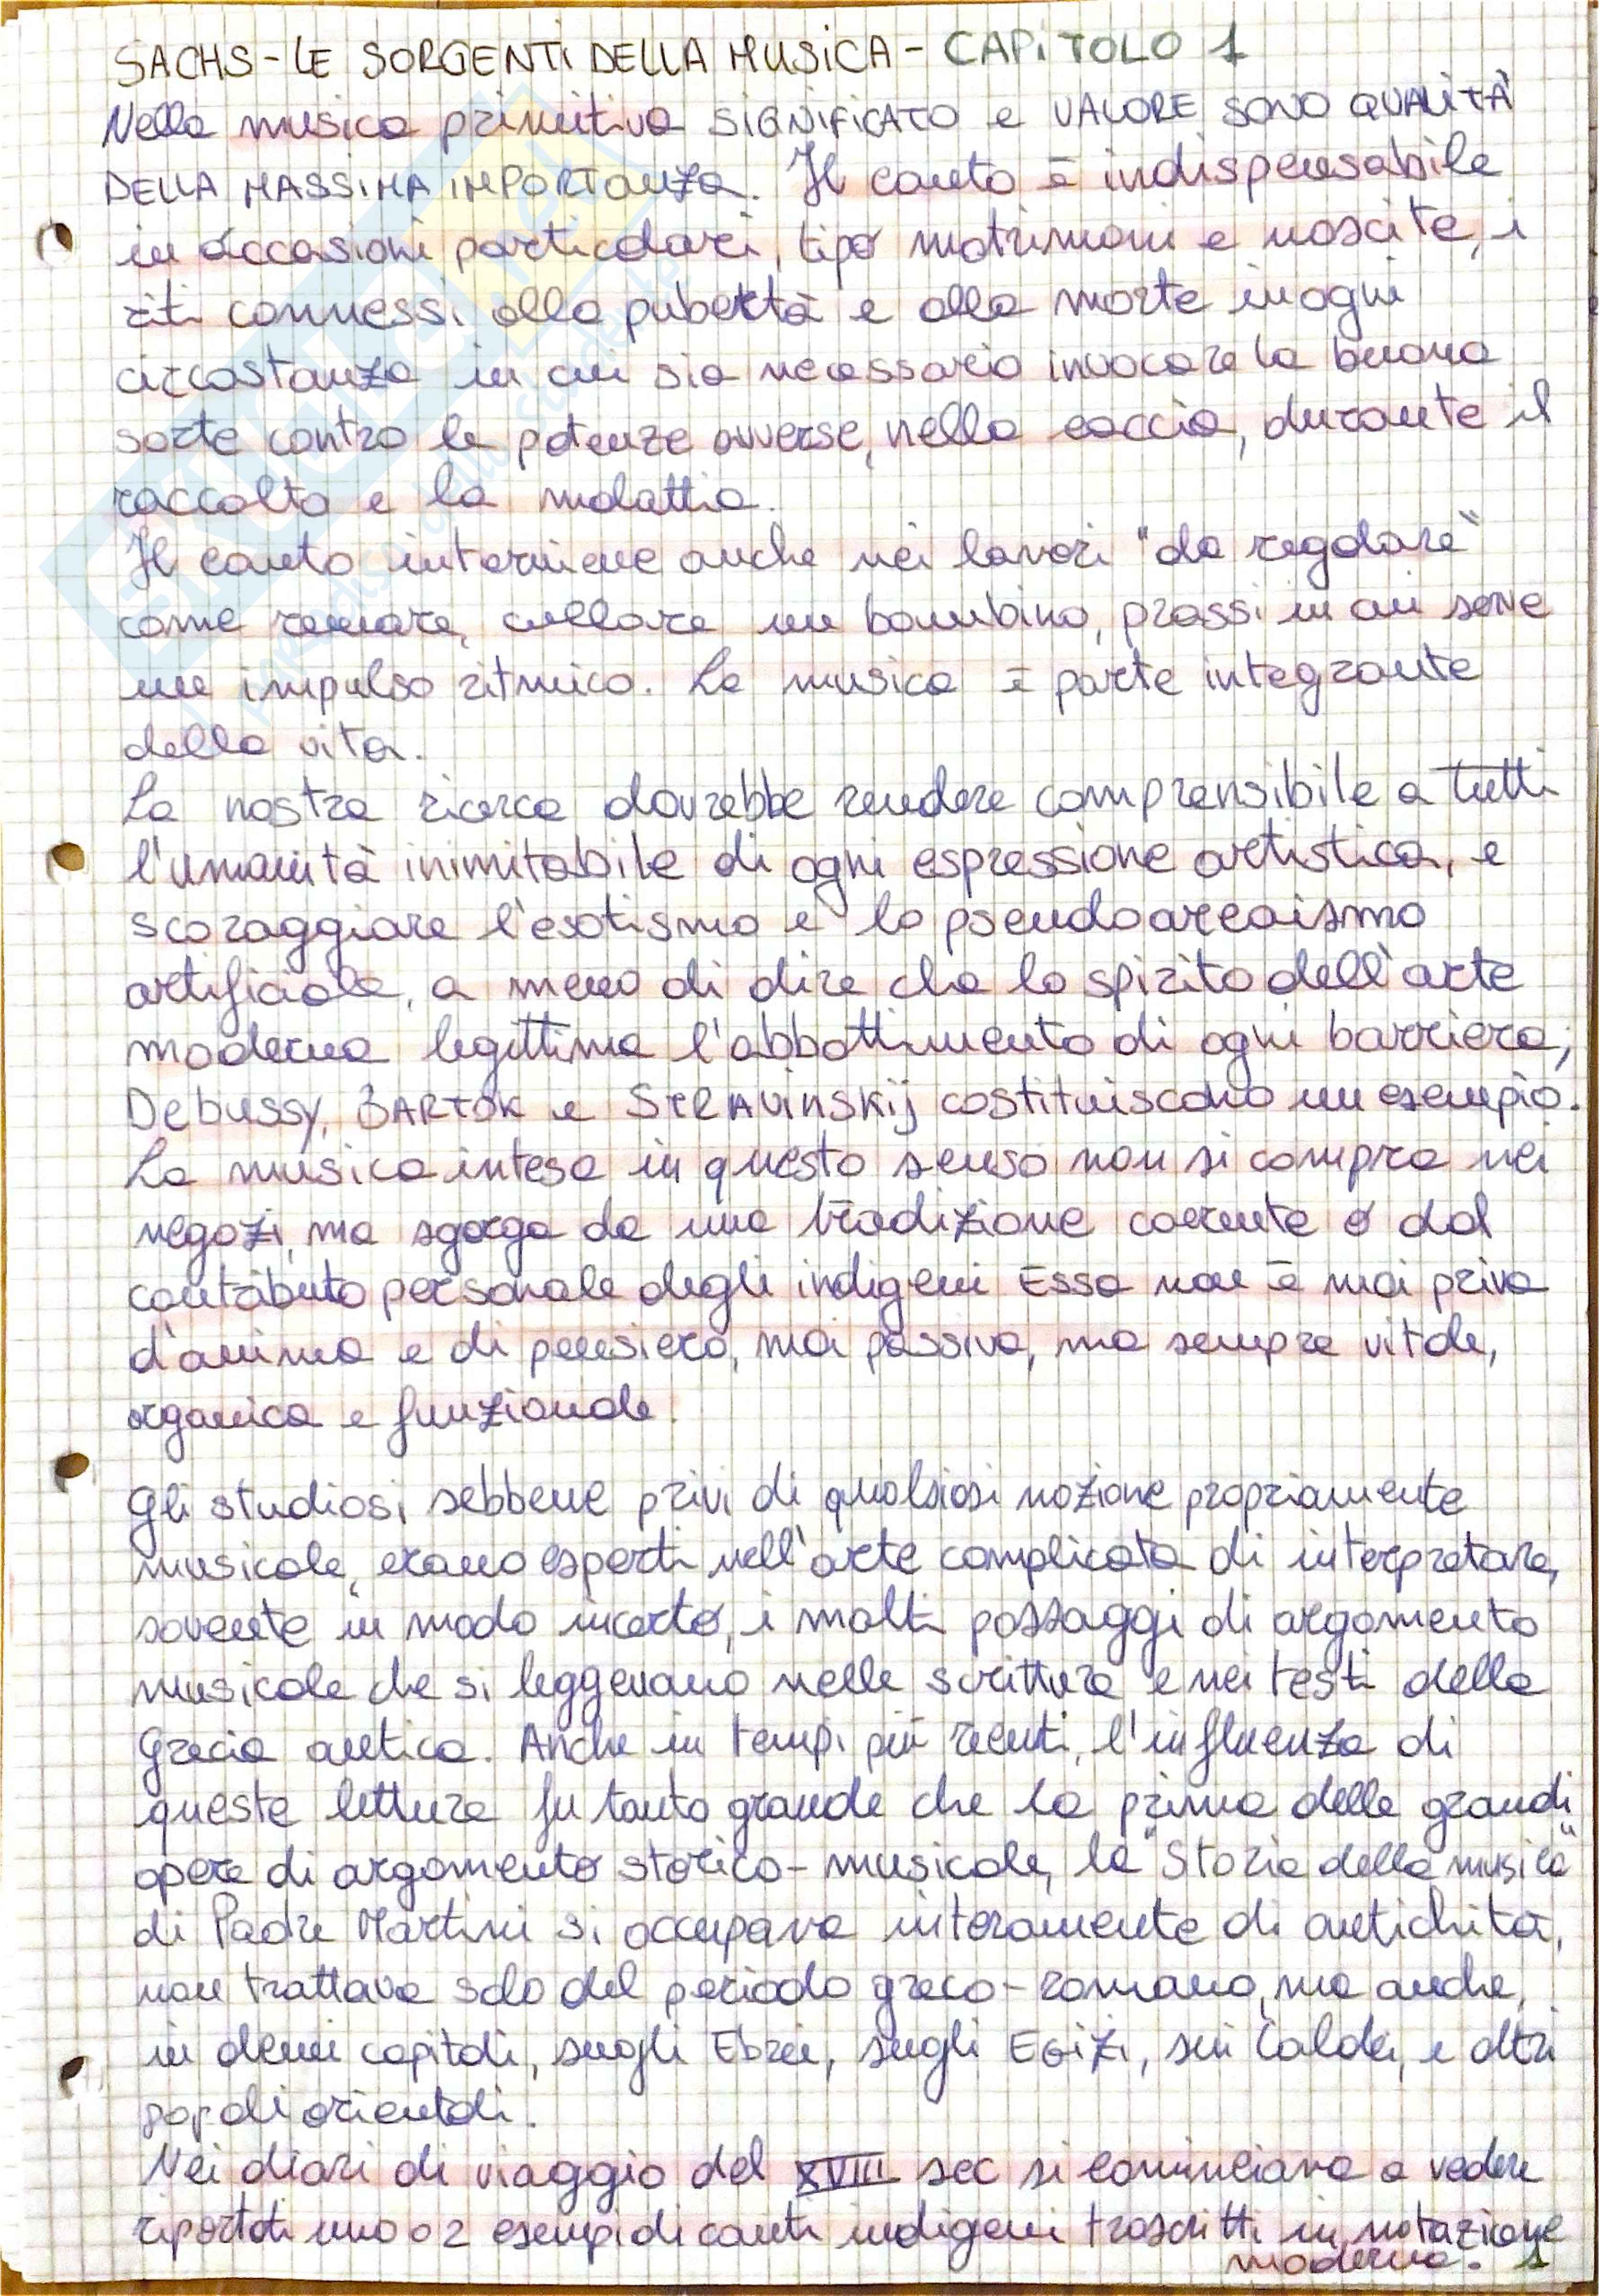 SACHS - LE SORGENTI DELLA MUSICA - CAPITOLO 1
Nella musica primitiva SIGNIFICATO e VALORE SONO QUALITÀ
DELLA MASSIMA IMPORTANZA. Il canto è indispensabile
in occasioni particolari, tipo matrimoni e nascite, i
riti connessi alla pubertà e alla morte in ogni
circostanza in cui sia necessario invocare la buona
sorte contro le potenze avverse, nella caccia, durante il
raccolto e la malattia.
Il canto interviene anche nei lavori "da regolare"
come remare, cullare un bambino, prassi in cui serve
un impulso ritmico. La musica è parte integrante
della vita.
La nostra ricerca dovrebbe rendere comprensibile a tutti
l'umanità inimitabile di ogni espressione artistica, e
scoraggiare l'esotismo e lo pseudoarcaismo
artificiale, a meno di dire che lo spirito dell'arte
moderna legittima l'abbattimento di ogni barriera;
Debussy, BARTOK e STRAVINSKIJ costituiscono un esempio.
La musica intesa in questo senso non si compra nei
negozi, ma sgorga da una tradizione coerente o dal
contributo personale degli indigeni Essa non è mai priva
d'anima e di pensiero, mai passiva, ma sempre vitale,
organica e funzionale.
Gli studiosi, sebbene privi di qualsiasi nozione propriamente
musicale, erano esperti nell'arte complicata di interpretare,
sovente in modo incerto, i molti passaggi di argomento
musicale che si leggevano nelle scritture e nei testi della
Grecia antica. Anche in tempi più recenti, l'influenza di
queste letture fu tanto grande che la prima delle grandi
opere di argomento storico-musicale, la "Storia della musica"
di Padre Martini si occupava interamente di antichità,
non trattava solo del periodo greco-romano, ma anche,
in alcuni capitoli, sugli Ebrei, sugli EGIZI, sui Caldei, e altri
popoli orientali.
Nei diari di viaggio del XVIII sec si cominciano a vedere
riportati uno o 2 esempi di canti indigeni trascritti in notazione
moderna. 1